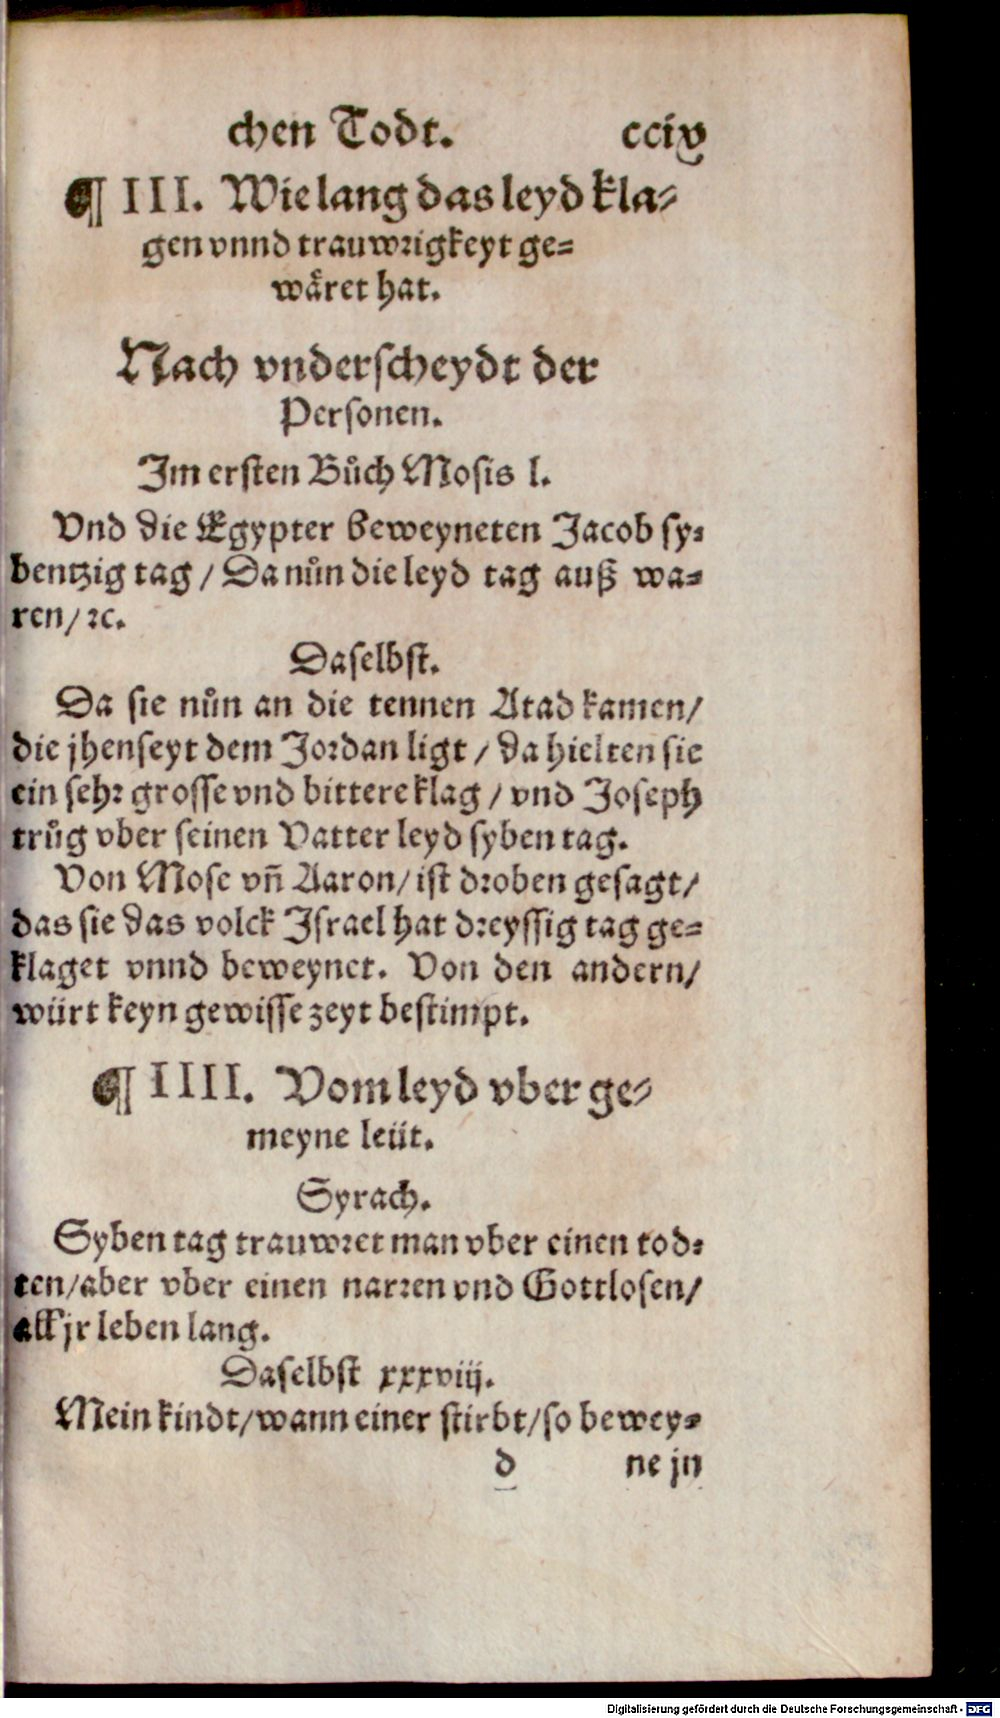 chen Todt. ccix
¶ III. Wie lang das leyd kla⸗
gen vnnd trauwrigkeyt ge⸗
wåret hat.
Nach vnderscheydt der
Personen.
Im ersten Bůch Mosis l.
Vnd die Egypter beweyneten Jacob sy⸗
bentzig tag / Da nůn die leyd tag auß wa⸗
ren / ꝛc.
Daselbst.
Da sie nůn an die tennen Atad kamen /
die jhenseyt dem Jordan ligt / da hielten sie
ein sehr grosse vnd bittere klag / vnd Joseph
trůg vber seinen Vatter leyd syben tag.
Von Mose vñ Aaron / ist droben gesagt /
das sie das volck Israel hat dreyssig tag ge⸗
klaget vnnd beweynet. Von den andern /
würt keyn gewisse zeyt bestimpt.
¶ IIII. Vom leyd vber ge⸗
meyne leüt.
Syrach.
Syben tag trauwret man vber einen tod⸗
ten / aber vber einen narren vnd Gottlosen /
all jr leben lang.
Daselbst xxxviij.
Mein kindt / wann einer stirbt / so bewey⸗
d ne jn
Digitalisierung gefördert durch die Deutsche Forschungsgemeinschaft - DFG